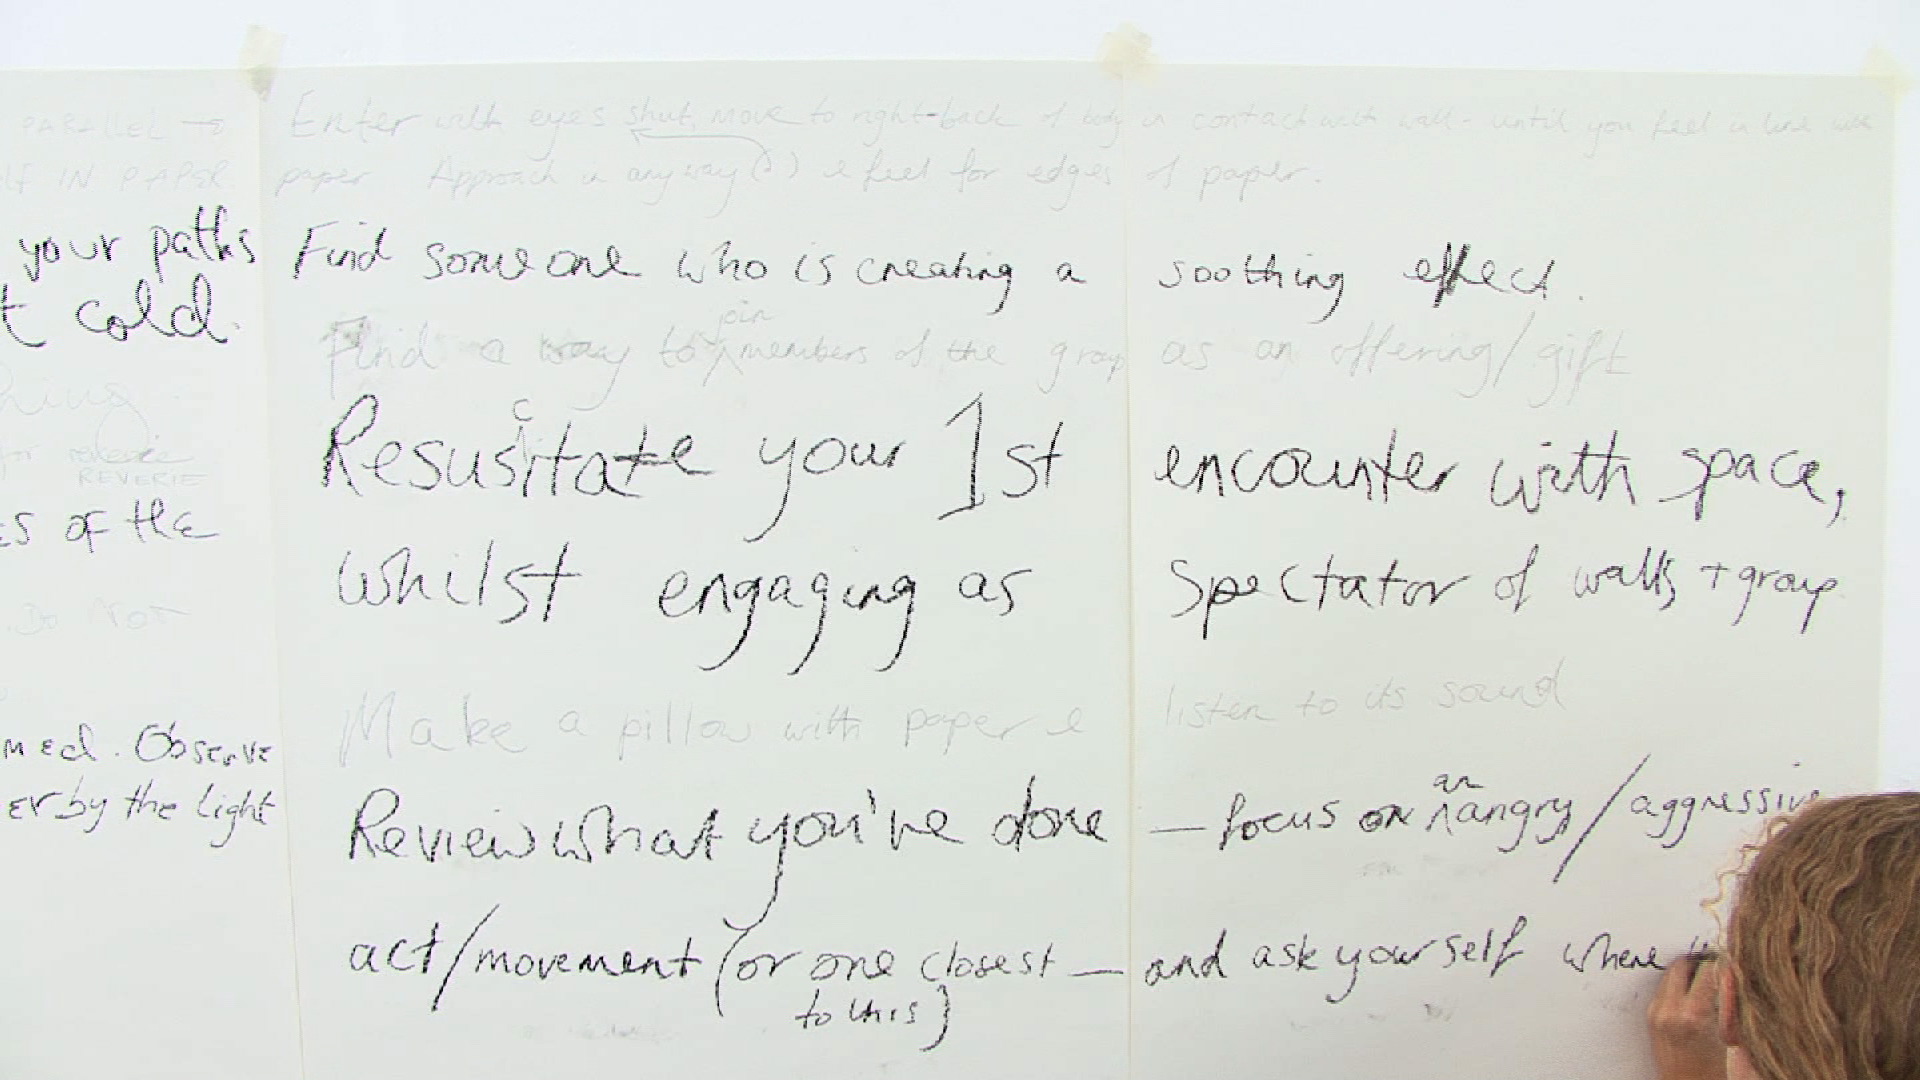 PARALLEL TO
IN PAPER
your paths
t cold.
REVERIE
ES OF the
Do NOT
med. Observe
er by the light
Enter with eyes shut, move to right-back of body in contact with wall - until you feel in line with
paper. Approach in any way (s) & feel for edges of paper.
Find someone who is creating a soothing effect.
Find a way to join members of the group as an offering/gift
Resuscitate your 1st encounter with space,
whilst engaging as spectator of walls + group
Make a pillow with paper & listen to its sound
Review what you've done — focus on an angry / aggressive
act/movement (or one closest to this) — and ask yourself where